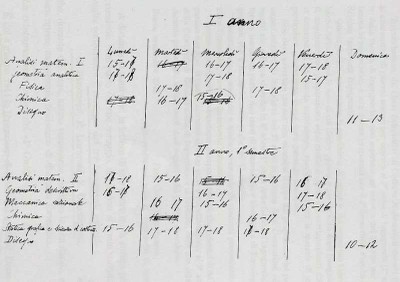 I anno
Lunedì Martedì Mercoledì Giovedì Venerdì Domenica
Analisi matem. I 15-17 16-17 16-17 16-17 17-18
Geometria analitica 17-18 17-18 15-17
Fisica 17-18 17-18
Chimica 17-18 16-17 15-16
Disegno 11-13
II anno, 1° semestre
Analisi matem. II 17-18 15-16 15-16 15-16 16 17
Geometria descrittiva 16-17 16-17 17-18
Meccanica razionale 16 17 15-16 15-16
Chimica 16-17
Statica grafica e 15-16 17-18 17-18 17-18
Disegno 10-12